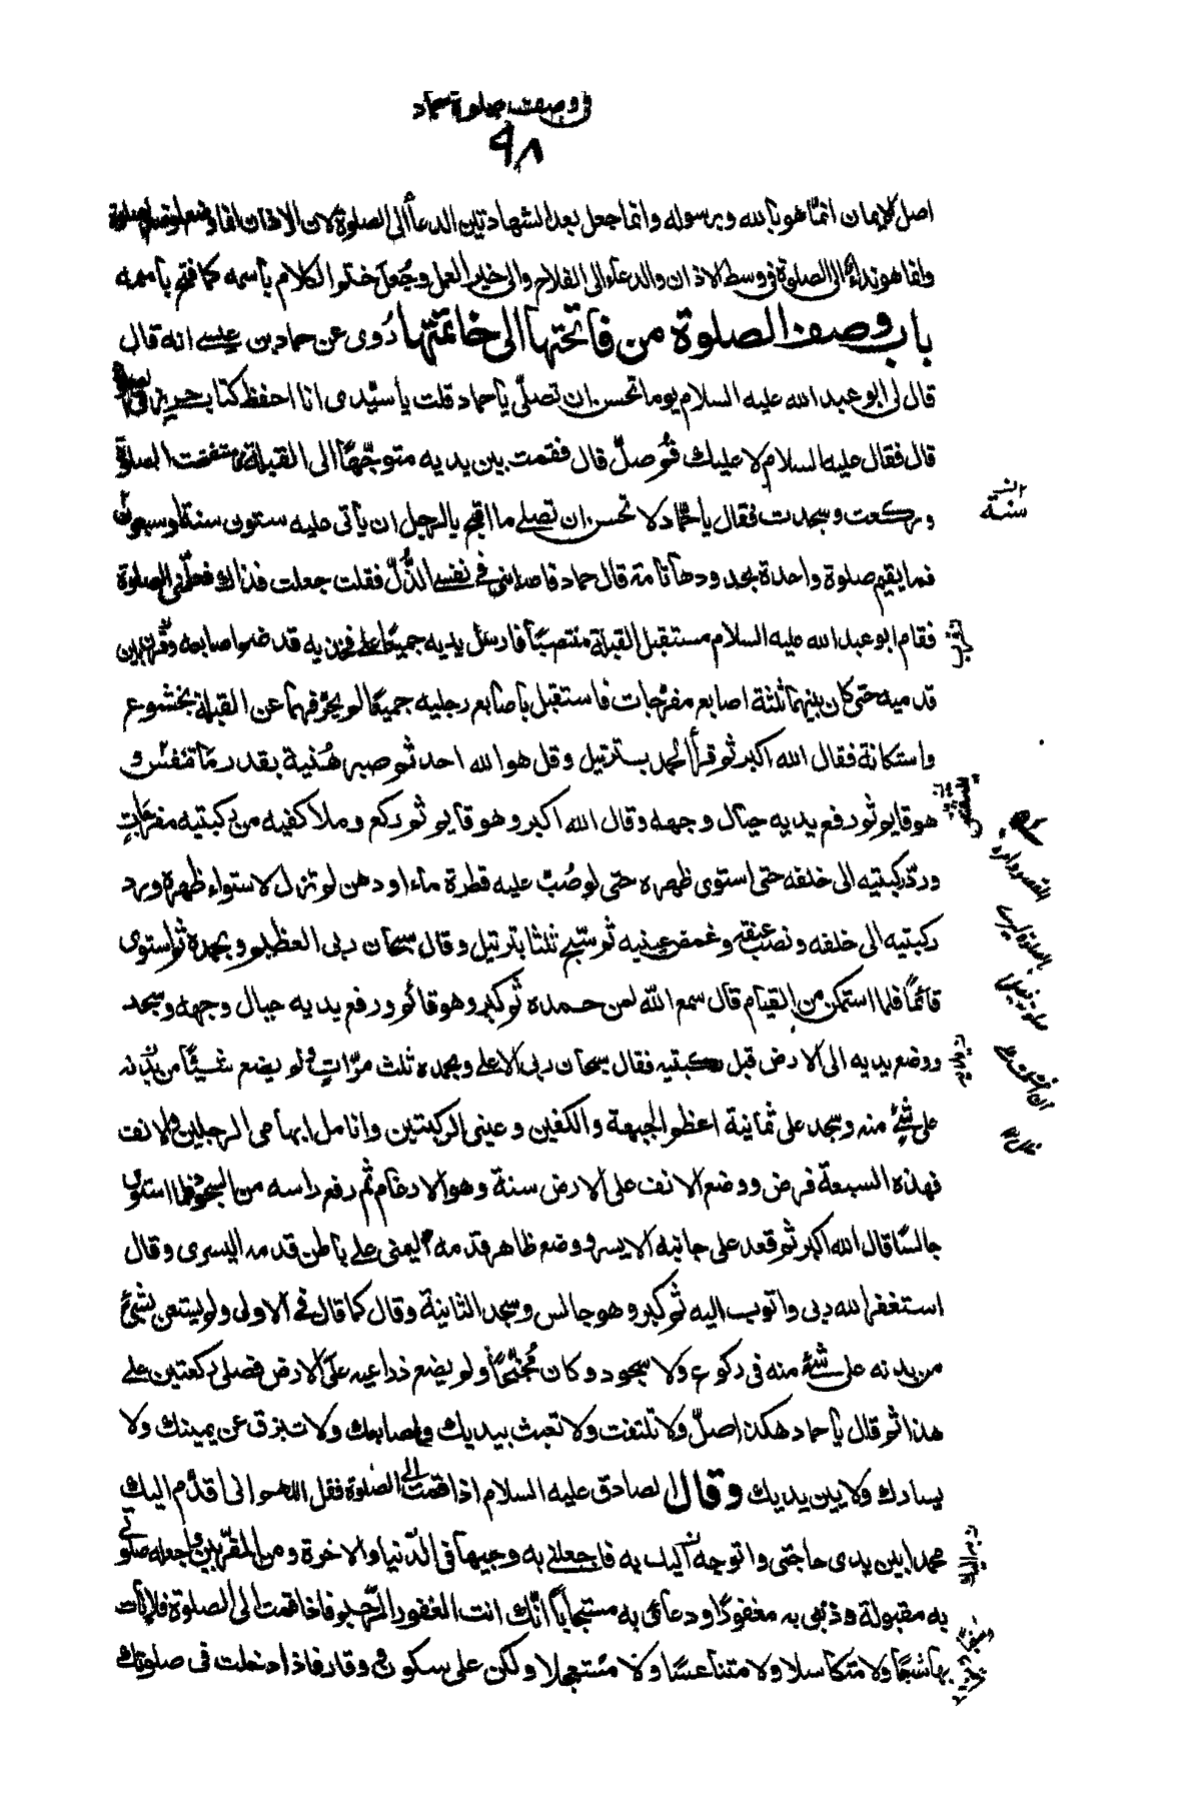 في وصف صلوة حماد
٩٨
اصل الايمان انما هو بالله وبرسوله وانما جعل بعد الشهادتين الدعاء الى الصلوة لان الاذان انما وضع لموضع الصلوة
وانما هو نداء الى الصلوة في وسط الاذان والدعاء الى الفلاح والى خير العمل وجعل ختم الكلام باسمه كما فتح باسمه
باب وصف الصلوة من فاتحتها الى خاتمتها رُوى عن حماد بن عيسى انه قال
قال لى ابو عبد الله عليه السلام يوما تحسن ان تصلّى يا حماد قلت يا سيّدى انا احفظ كتاب حريز فى الصلوة
قال فقال عليه السلام لا عليك قُم صلّ قال فقمت بين يديه متوجّهًا الى القبلة فاستفتحت الصلوة
وركعت وسجدت فقال يا حمّاد لا تحسن ان تصلى ما اقبح بالرجل ان يأتى عليه ستون سنة او سبعون
سنة
فما يقيم صلوة واحدة بحدودها تامة قال حماد فاصابنى فى نفسى الذّلّ فقلت جعلت فداك فعلّمنى الصلوة
فقام ابو عبد الله عليه السلام مستقبل القبلة منتصبًا فارسل يديه جميعًا على فخذيه قد ضم اصابعه وقرّب بين
قدميه حتى كان بينهما ثلثة اصابع مفرّجات فاستقبل باصابع رجليه جميعًا لم يحرّفهما عن القبلة بخشوع
واستكانة فقال الله اكبر ثم قرأ الحمد بترتيل وقل هو الله احد ثم صبر هُنيئة بقدر ما تنفّس و
هو قايم ثم رفع يديه حيال وجهه وقال الله اكبر وهو قايم ثم ركع وملا كفيه من ركبتيه مفرّجاتٍ
وردّ ركبتيه الى خلفه حتى استوى ظهره حتى لو صُبّ عليه قطرة ماء او دهن لم تزل لاستواء ظهره ورد
ركبتيه الى خلفه ونصب عنقه وغمض عينيه ثم سبّح ثلثا بترتيل وقال سبحان ربى العظيم وبحمده ثم استوى
قائمًا فلما استمكن من القيام قال سمع الله لمن حمده ثم كبر وهو قائم ورفع يديه حيال وجهه وسجد
ووضع يديه الى الارض قبل ركبتيه فقال سبحان ربى الاعلى وبحمده ثلث مرّاتٍ ولم يضع شيئًا من بدنه
على شئٍ منه وسجد على ثمانية اعظم الجبهة والكفين وعينى الركبتين وانامل ابهامى الرجلين والانف
فهذه السبعة فرض ووضع الانف على الارض سنة وهو الارغام ثم رفع راسه من السجود فلما استوى
جالسًا قال الله اكبر ثم قعد على جانبه الايسر ووضع ظاهر قدمه اليمنى على باطن قدمه اليسرى وقال
استغفر الله ربى واتوب اليه ثم كبر وهو جالس وسجد الثانية وقال كما قال فى الاولى ولم يستعن بشئ
من بدنه على شئٍ منه فى ركوع ولا سجود وكان مُجنّحًا ولم يضع ذراعيه على الارض فصلى ركعتين على
هذا ثم قال يا حماد هكذا صلّ ولا تلتفت ولا تعبث بيديك واصابعك ولا تبزق عن يمينك ولا
يسارك ولا بين يديك وقال الصادق عليه السلام اذا قمت الى الصلوة فقل اللهم انى اقدّم اليك
محمدا بين يدى حاجتى واتوجه به اليك فاجعلنى به وجيها فى الدّنيا والاخرة ومن المقرّبين واجعل صلوتى
به مقبولة وذنبى به مغفورًا ودعائى به مستجابًا انّك انت الغفور الرّحيم فاذا قمت الى الصلوة فلا تات
بها شبعًا ولا متكاسلا ولا متناعسًا ولا مستعجلا ولكن على سكون ووقار فاذا دخلت فى صلوتك